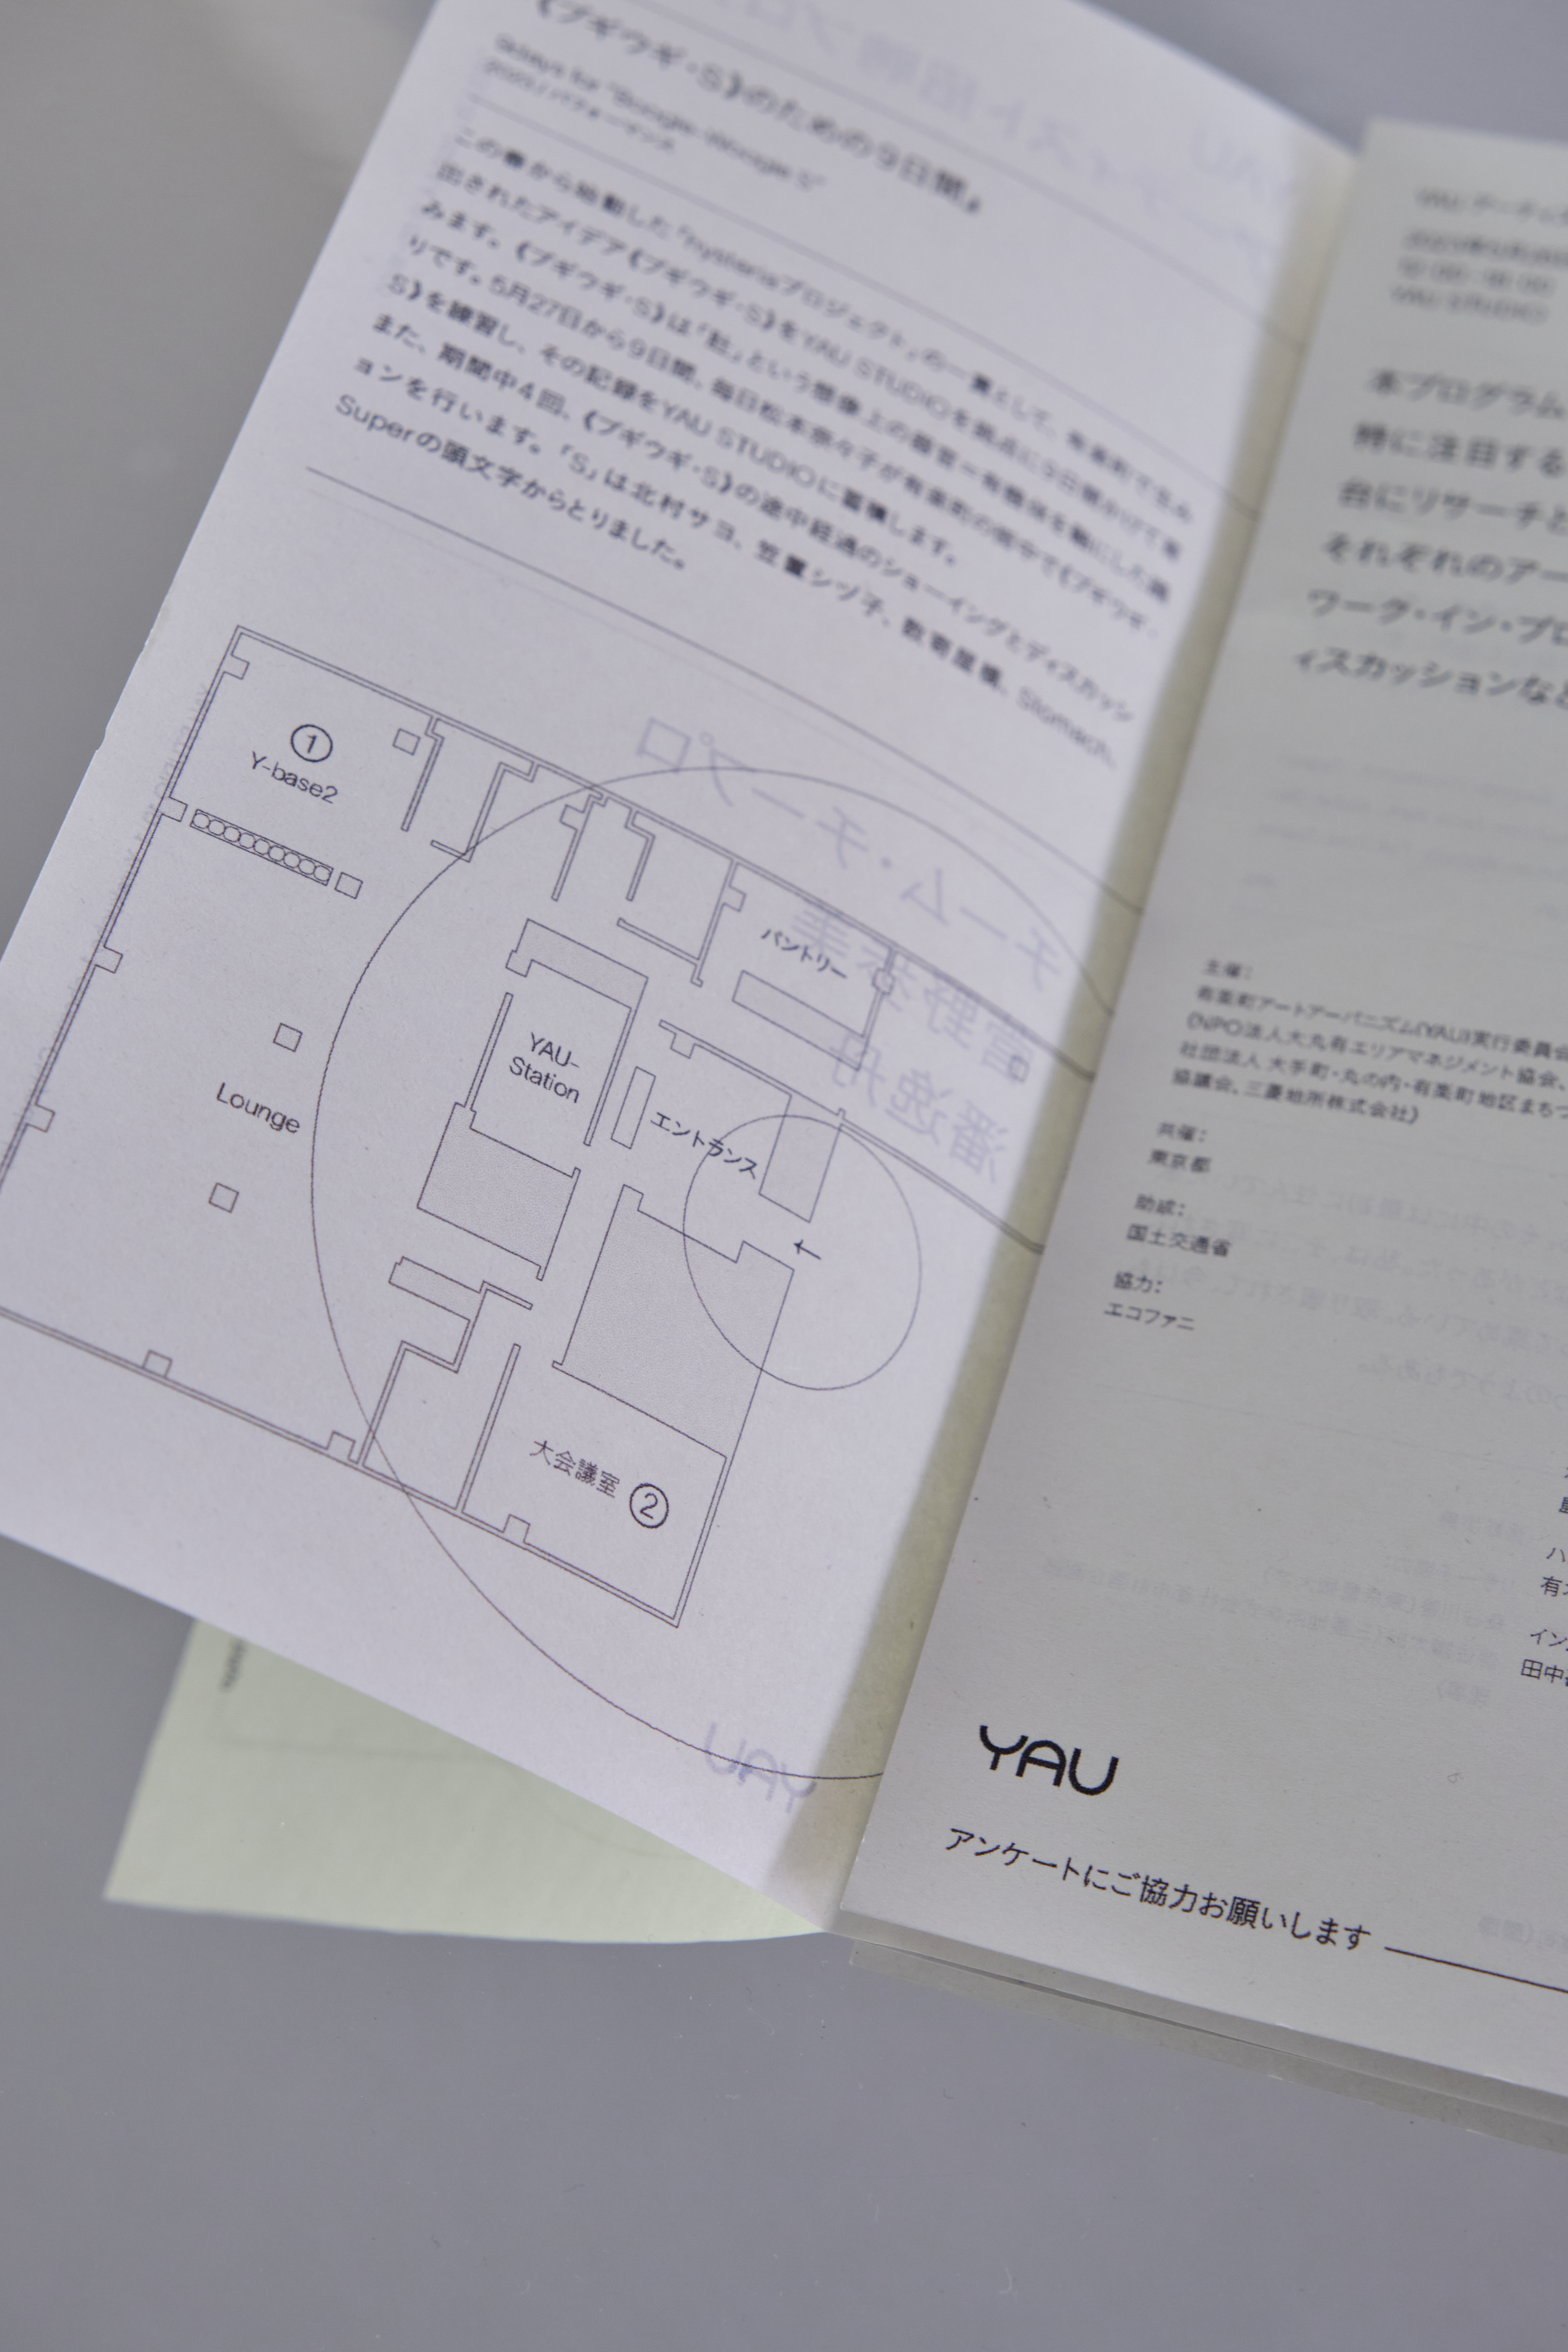 《ブギウギ・S》のための9日間』
9days for "Boogie-Woogie S"
この春から始動した『hysteriaプロジェクト』の一貫として、有楽町で生み
出されたアイデア《ブギウギ・S》をYAU STUDIOを拠点に9日間かけて
みます。《ブギウギ・S》は「肚」という想像上の器官=有機体を軸にした
りです。5月27日から9日間、毎日松本奈々子が有楽町の街中で《ブギウギ・
S》を練習し、その記録をYAU STUDIOに蓄積します。
また、期間中4回、《ブギウギ・S》の途中経過のショーイングとディスカッシ
ョンを行います。「S」は北村サヨ、笠置シヅ子、数寄屋橋、Stomach、
Superの頭文字からとりました。
①
Y-base2
パントリー
YAU-
Station
エントランス
Lounge
←
大会議室 ②
YAU アーティス
YAU STUDIO
本プログラム
特に注目する
台にリサーチと
それぞれのアー
ワーク・イン・プロ
ィスカッションなど
主催:
有楽町アートアーバニズム(YAU)実行委員会
(NPO法人大丸有エリアマネジメント協会、
社団法人 大手町・丸の内・有楽町地区まちづ
協議会、三菱地所株式会社)
共催:
東京都
助成:
国土交通省
協力:
エコファニ
ハ
イン
田中
YAU
アンケートにご協力お願いします